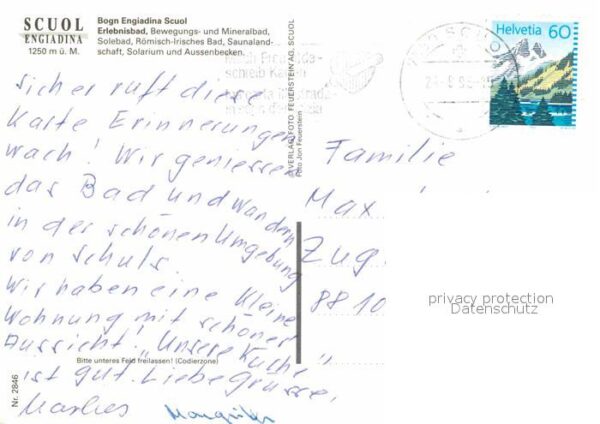 SCUOL
ENGIADINA
1250 m ü. M.
Bogn Engiadina Scuol
Erlebnisbad, Bewegungs- und Mineralbad,
Solebad, Römisch-Irisches Bad, Saunaland-
schaft, Solarium und Aussenbecken.
Helvetia 60
sicher ruft diese
Karte Erinnerungen
wach! Wir geniessen
das Bad und wandern
in der schönen Umgebung
von Schuls.
Wir haben eine kleine
Wohnung mit schöner
Aussicht! "Unsere Küche"
ist gut. Liebe Grüsse,
Marlies
VERLAG/FOTO FEUERSTEIN AG, SCUOL
Foto Jon Feuerstein
Familie
Max
Zug
8810
privacy protection
Datenschutz
Bitte unteres Feld freilassen! (Codierzone)
Nr. 2846